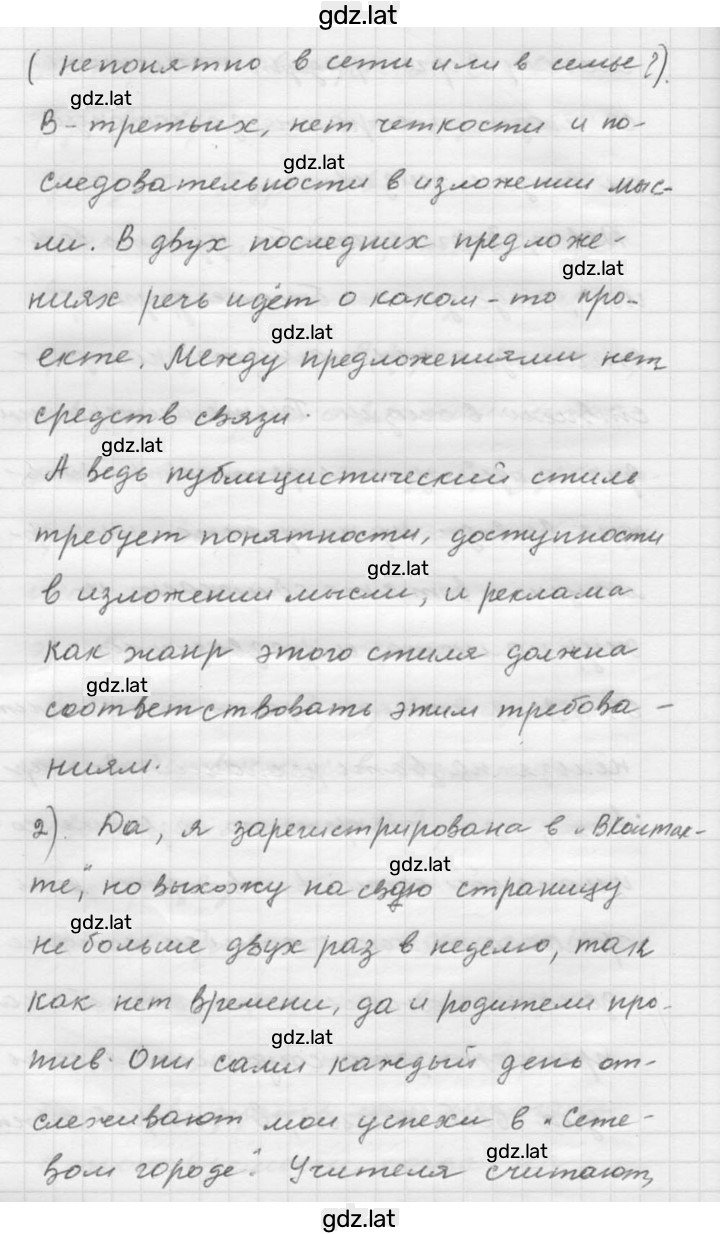 gdz.lat
(непонятно в сети или в семье?).
gdz.lat
В-третьих, нет четкости и по-
gdz.lat
следовательности в изложении мыс-
ли. В двух последних предложе-
gdz.lat
ниях речь идёт о каком-то про-
gdz.lat
екте. Между предложениями нет
средств связи.
gdz.lat
А ведь публицистический стиль
требует понятности, доступности
gdz.lat
в изложении мысли, и реклама
как жанр этого стиля должна
gdz.lat
соответствовать этим требова-
ниям.
2). Да, я зарегистрирована в „Вконтак-
gdz.lat
те“, но выхожу на свою страницу
gdz.lat
не больше двух раз в неделю, так
как нет времени, да и родители про-
gdz.lat
тив. Они сами каждый день от-
слеживают мои успехи в „Сете-
gdz.lat
вом городе“. Учителя считают,
gdz.lat